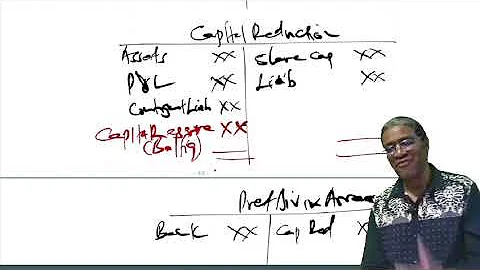 Capital Reduction
Assets XX Share Cap XX
P&L XX Liab XX
Contingent Liab XX
Capital Reserve XX
(Bal fig)
Pref Div in Arrea
Bank XX Cap Red X